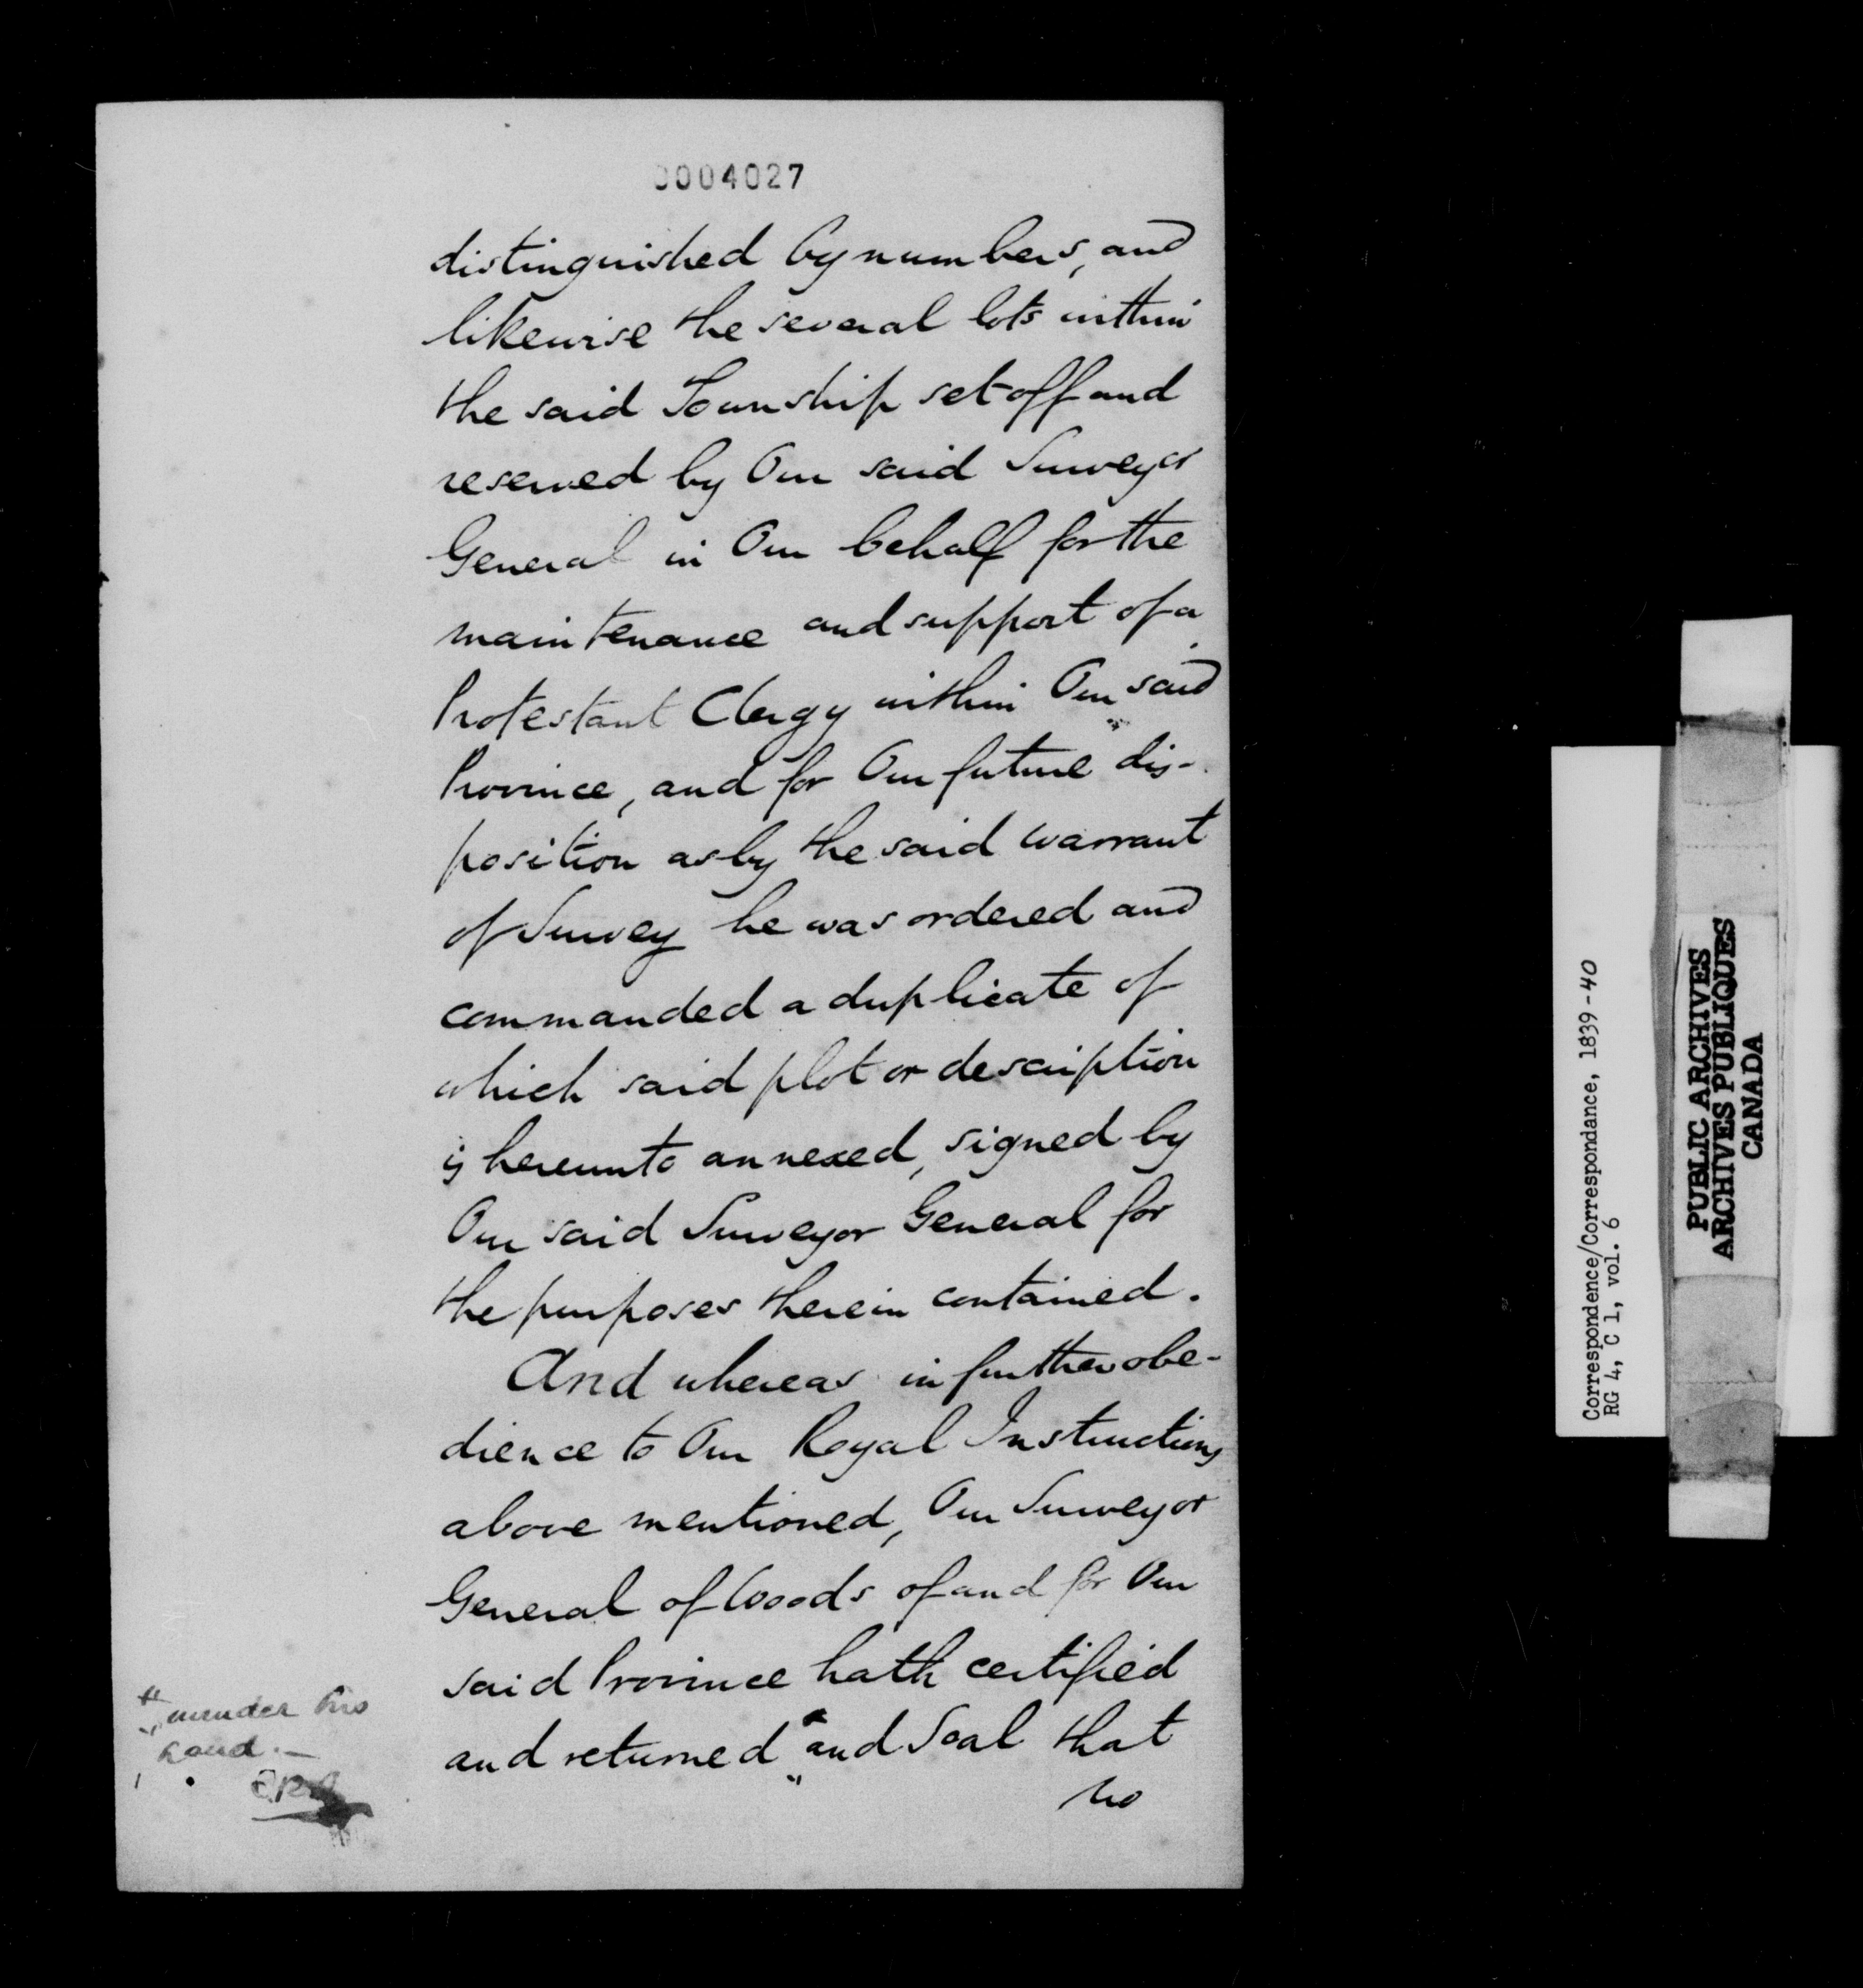 0004027
distinguished by numbers, and
likewise the several lots within
the said Township set off and
reserved by Our said Surveyor
General in Our behalf for the
maintenance and support of a
Protestant Clergy within Our said
Province, and for Our future dis-
position as by the said warrant
of Survey he was ordered and
commanded a duplicate of
which said plot or description
is hereunto annexed, signed by
Our said Surveyor General for
the purposes therein contained.
And whereas in further obe-
dience to Our Royal Instructions
above mentioned, Our Surveyor
General of Woods of and for Our
said Province hath certified
and returned " and Seal that
no
" under his
hand. —
Correspondence/Correspondance, 1839-40
RG 4, C 1, vol. 6
PUBLIC ARCHIVES
ARCHIVES PUBLIQUES
CANADA